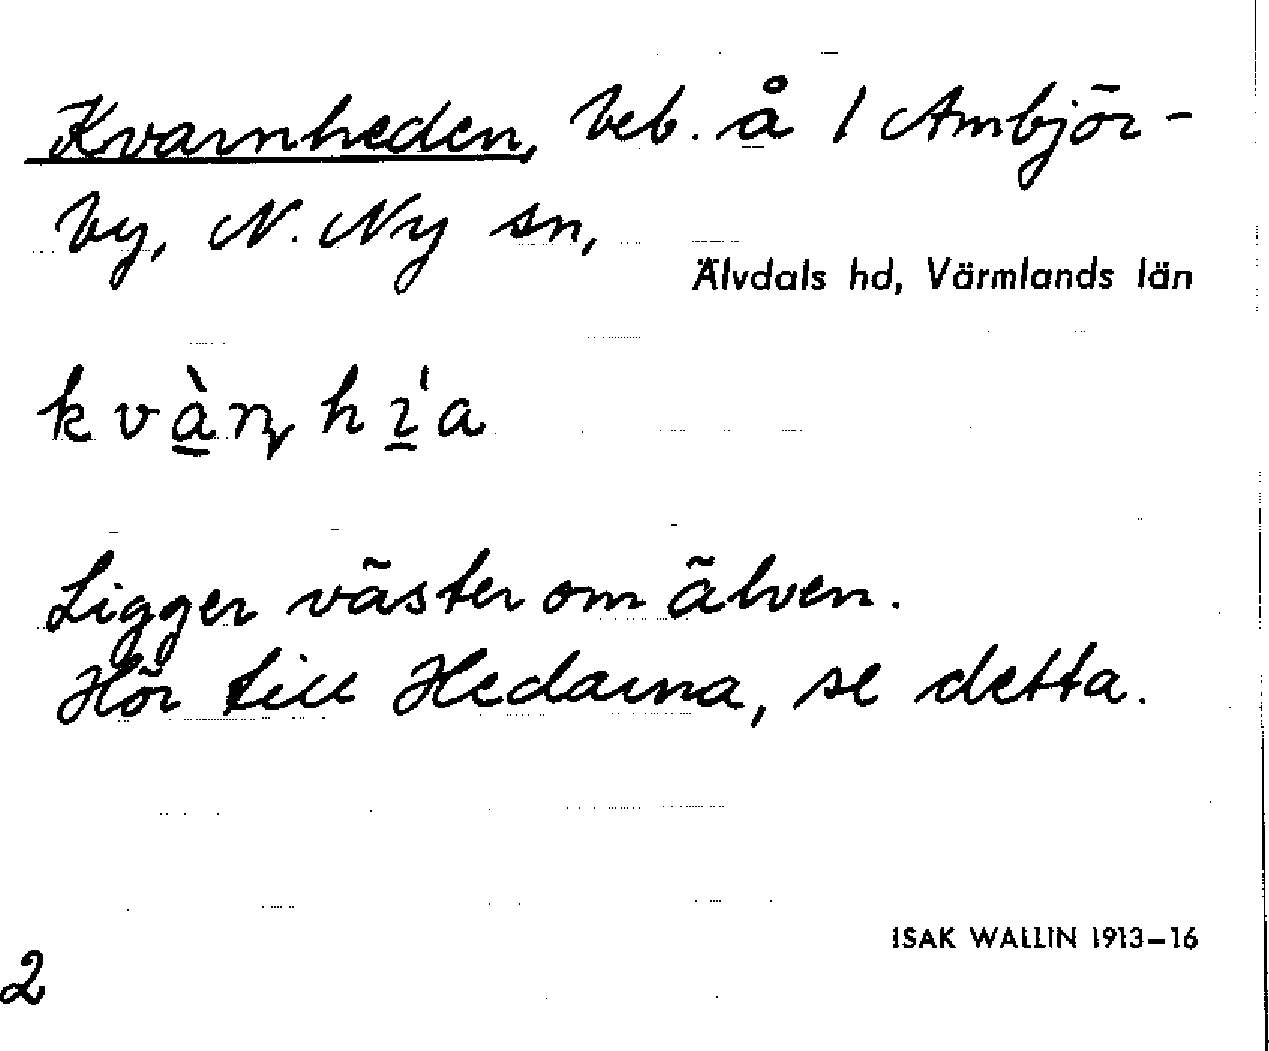 Kvarnheden, beb. å 1 Ambjör-
by, N. Ny sn,
Älvdals hd, Värmlands län
kvàn̨hı̱́a
Ligger väster om älven.
Hör till Hedarna, se detta.
ISAK WALLIN 1913–16
2